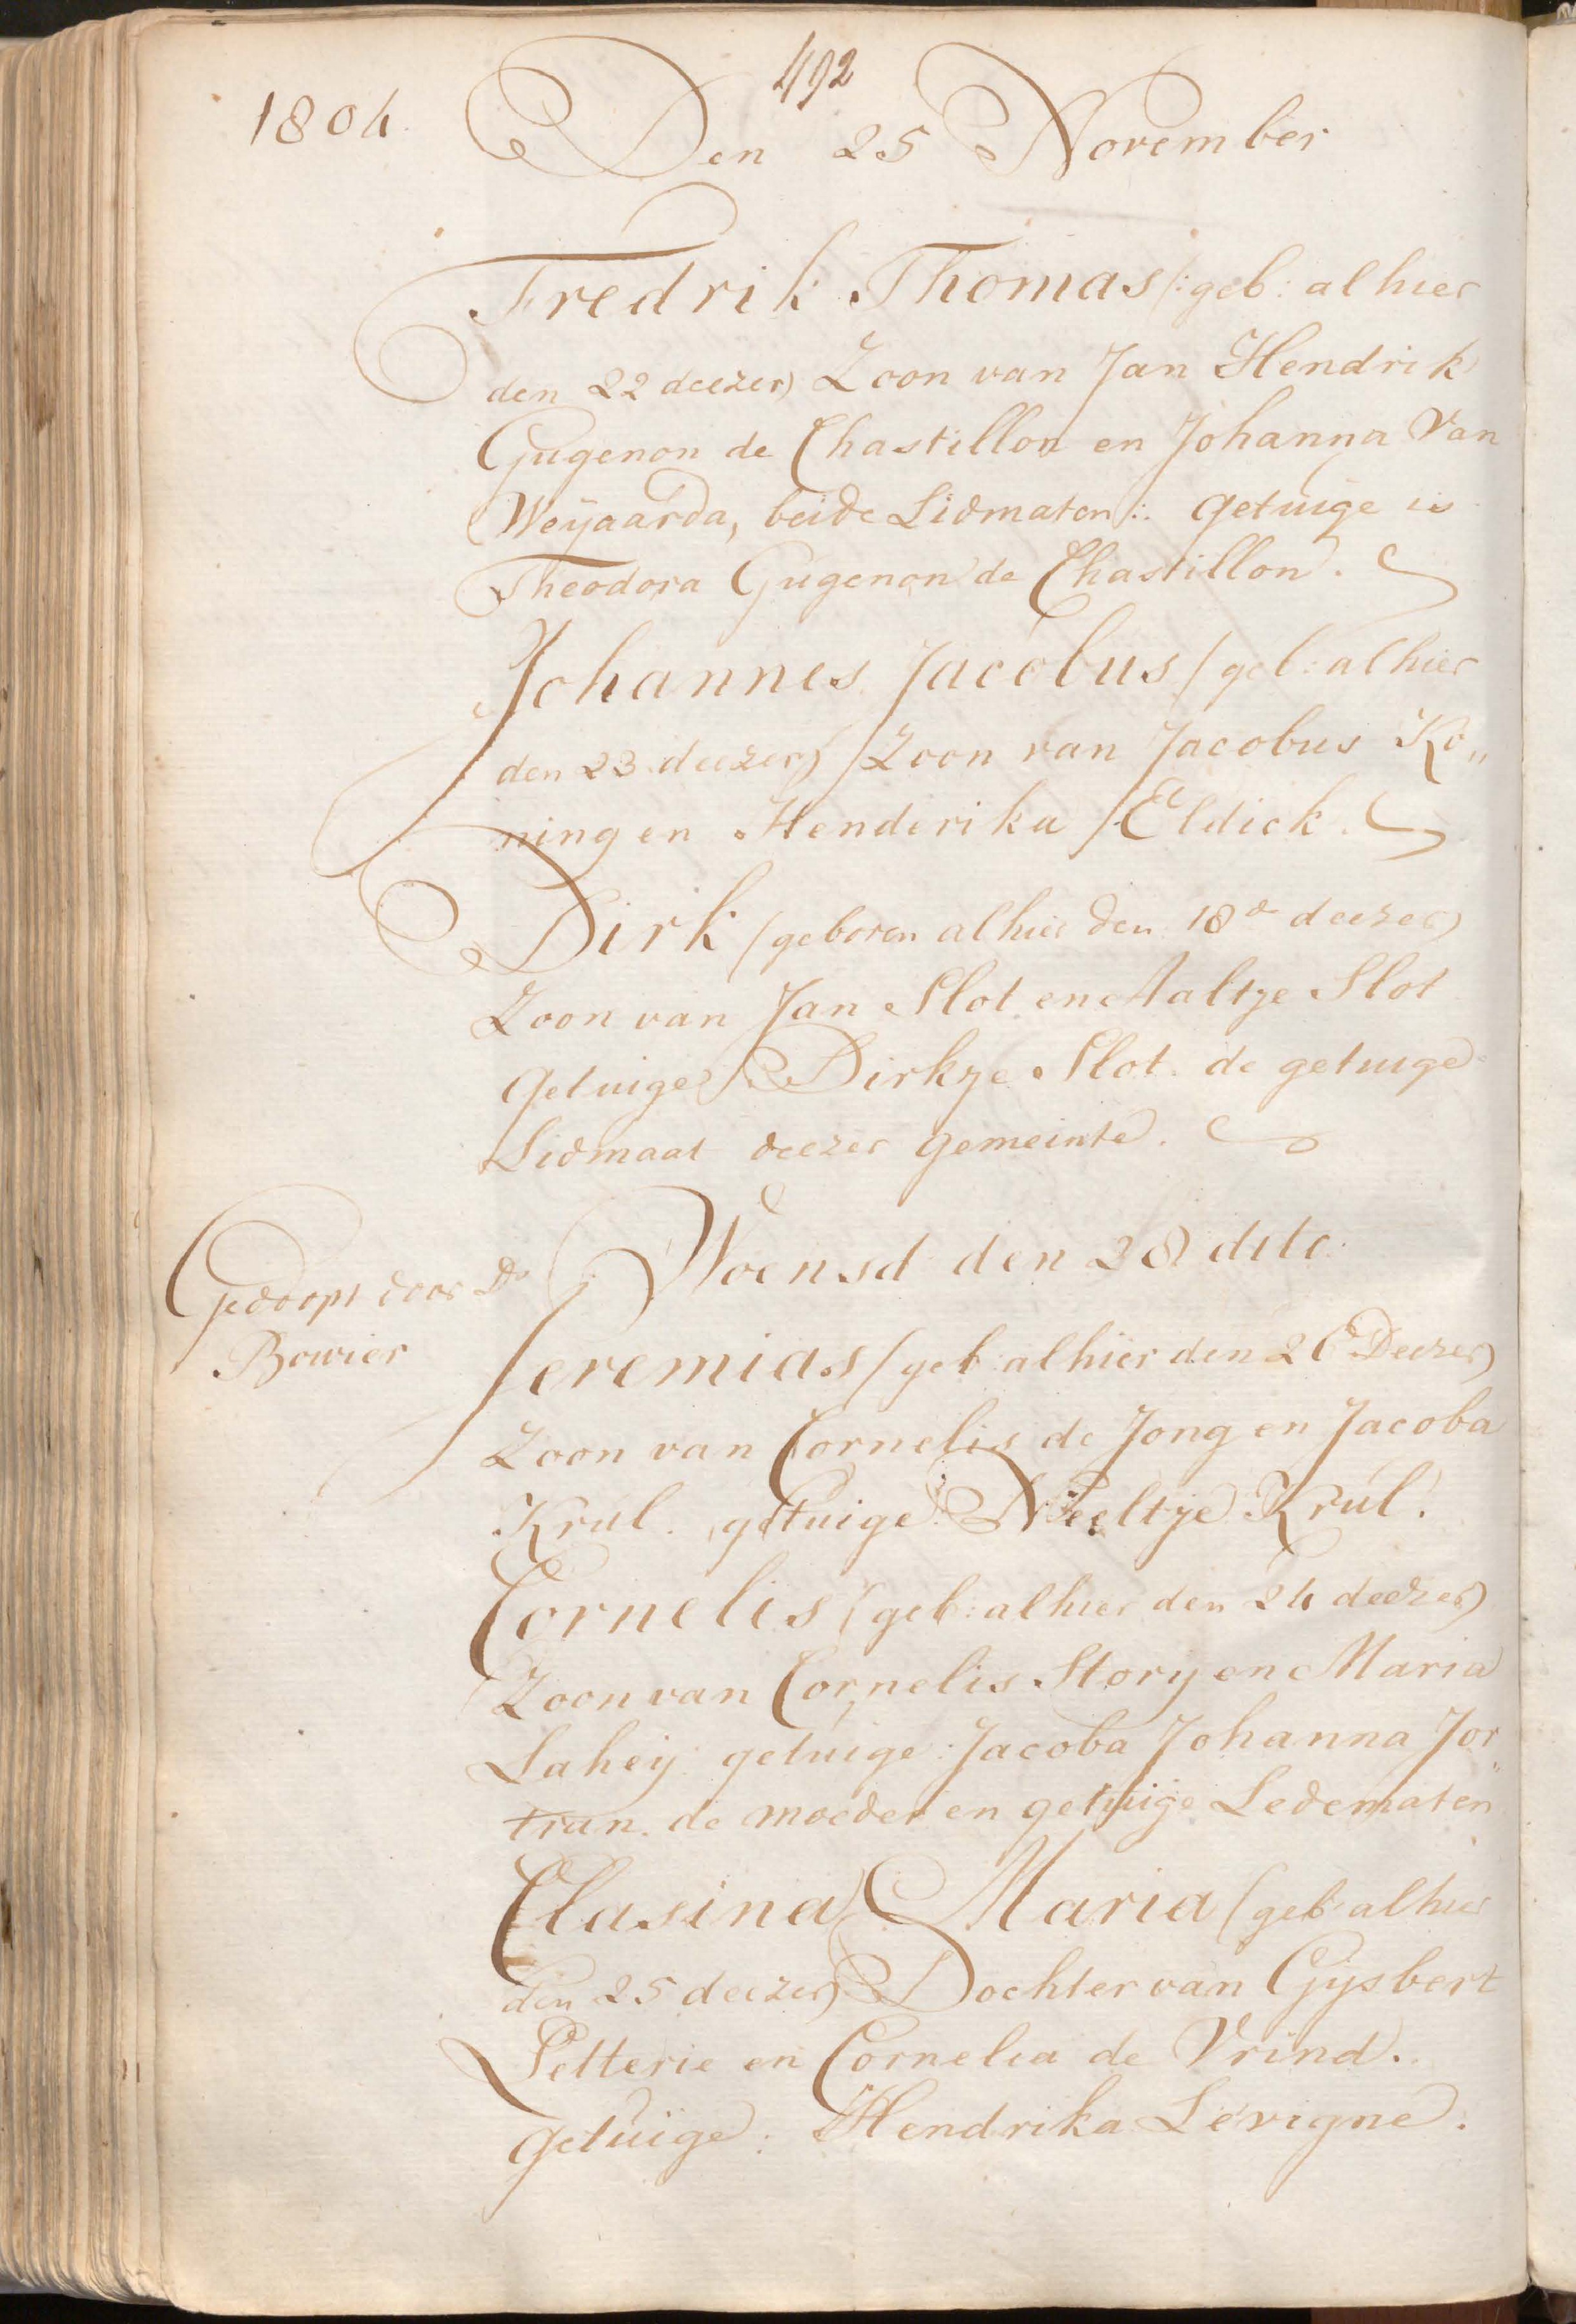 492
1804.
Den 25 November
Fredrik Thomas /: geb: alhier
den 22 deezer) Zoon van Jan Hendrik
Gugenon de Chastillon en Johanna Van
Weyaarda, beide Lidmaten :. getuige is
Theodora Gugenon de Chastillon.
Johannes Jacobus / geb: alhier
den 23 deezer) Zoon van Jacobus Ko„
ning en Henderika Eldick.
Dirk (geboren alhier den 18e deezer)
Zoon van Jan Slot en Aaltje Slot
getuige Dirkje Slot. de getuige
Lidmaat deezer gemeinte.
Woensd den 28 dito.
Gedoopt door Ds
Bowier
Jeremias / geb: alhier den 26 Deezer)
Zoon van Cornelis de Jong en Jacoba
Krul. getuige Neeltje Krul.
Cornelis (geb: alhier den 24 deezer)
Zoon van Cornelis Story en Maria
Lahey getuige: Jacoba Johanna Jor„
tran. de moeder en getuige Ledematen
Clasina Maria (geb: alhier
den 25 deezer) Dochter van Gysbert
Petterie en Cornelia de Vrind.
getuige: Hendrika Levigne.